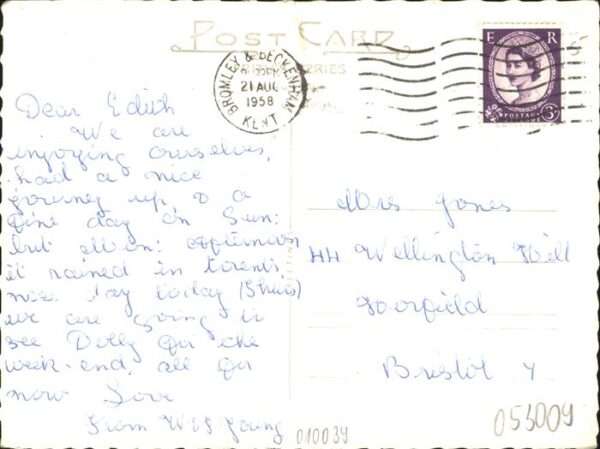 POST CARD
BROMLEY & BECKENHAM
21 AUG
1958
KENT
E R
POSTAGE
3D
Dear Edith
We are
enjoying ourselves,
had a nice
journey up, & a
fine day on Sun:
but Mon: afternoon
it rained in torents
nice day today (Thurs)
we are going to
see Dolly for the
week-end, all for
now Love
From W & S Young
Mrs Jones
44 Wellington Hill
Horfield
Bristol 7
010039
053009